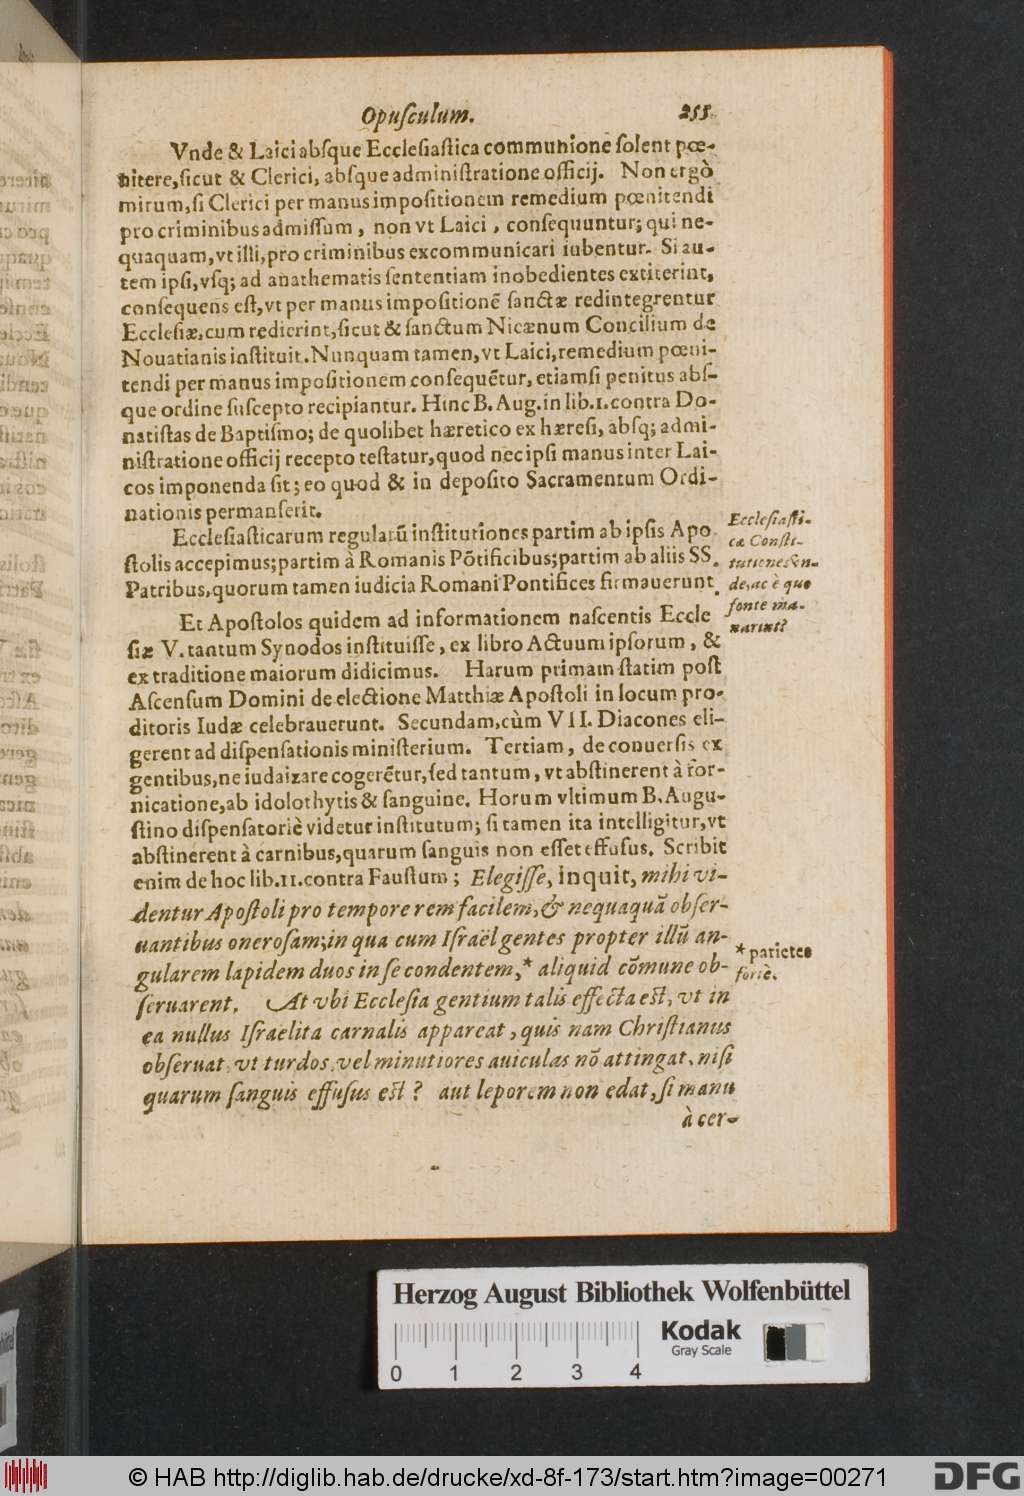 Opuſculum. 255.
Vnde & Laici abſque Eccleſiaſtica communione ſolent pœ-
nitere, ſicut & Clerici, abſque adminiſtratione officij. Non ergò
mirum, ſi Clerici per manus impoſitionem remedium pœnitendi
pro criminibus admiſſum, non vt Laici, conſequuntur; qui ne-
quaquam, vt illi, pro criminibus excommunicari iubentur. Si au-
tem ipſi, vſq; ad anathematis ſententiam inobedientes extiterint,
conſequens eſt, vt per manus impoſitionē ſanctæ redintegrentur
Eccleſiæ, cum redierint, ſicut & ſanctum Nicænum Concilium de
Nouatianis inſtituit. Nunquam tamen, vt Laici, remedium pœni-
tendi per manus impoſitionem conſequētur, etiamſi penitus abſ-
que ordine ſuſcepto recipiantur. Hinc B. Aug. in lib. 1. contra Do-
natiſtas de Baptiſmo; de quolibet hæretico ex hæreſi, abſq; admi-
niſtratione officij recepto teſtatur, quod nec ipſi manus inter Lai-
cos imponenda ſit; eo quod & in depoſito Sacramentum Ordi-
nationis permanſerit.
Eccleſiaſticarum regularū inſtitutiones partim ab ipſis Apo
ſtolis accepimus; partim à Romanis Pōtificibus; partim ab aliis SS.
Patribus, quorum tamen iudicia Romani Pontifices firmauerunt.
Eccleſiaſti-
cæ Conſti-
tutiones vn-
de, ac è quo
fonte ma-
narint?
Et Apoſtolos quidem ad informationem naſcentis Eccle
ſiæ V. tantum Synodos inſtituiſſe, ex libro Actuum ipſorum, &
ex traditione maiorum didicimus. Harum primam ſtatim poſt
Aſcenſum Domini de electione Matthiæ Apoſtoli in locum pro-
ditoris Iudæ celebrauerunt. Secundam, cùm VII. Diacones eli-
gerent ad diſpenſationis miniſterium. Tertiam, de conuerſis ex
gentibus, ne iudaizare cogerētur, ſed tantum, vt abſtinerent à for-
nicatione, ab idolothytis & ſanguine. Horum vltimum B. Augu-
ſtino diſpenſatoriè videtur inſtitutum; ſi tamen ita intelligitur, vt
abſtinerent à carnibus, quarum ſanguis non eſſet effuſus. Scribit
enim de hoc lib. 11. contra Fauſtum; Elegiſſe, inquit, mihi vi-
dentur Apoſtoli pro tempore rem facilem, & nequaquā obſer-
uantibus oneroſam; in qua cum Iſraël gentes propter illū an-
gularem lapidem duos in ſe condentem,* aliquid cōmune ob-
ſeruarent. At vbi Eccleſia gentium talis effecta eſt, vt in
* parietes
foriè.
ea nullus Iſraelita carnalis appareat, quis nam Chriſtianus
obſeruat, vt turdos, vel minutiores auiculas nō attingat, niſi
quarum ſanguis effuſus eſt? aut leporem non edat, ſi manu
à cer-
Herzog August Bibliothek Wolfenbüttel
Kodak
Gray Scale
0 1 2 3 4
© HAB http://diglib.hab.de/drucke/xd-8f-173/start.htm?image=00271
DFG